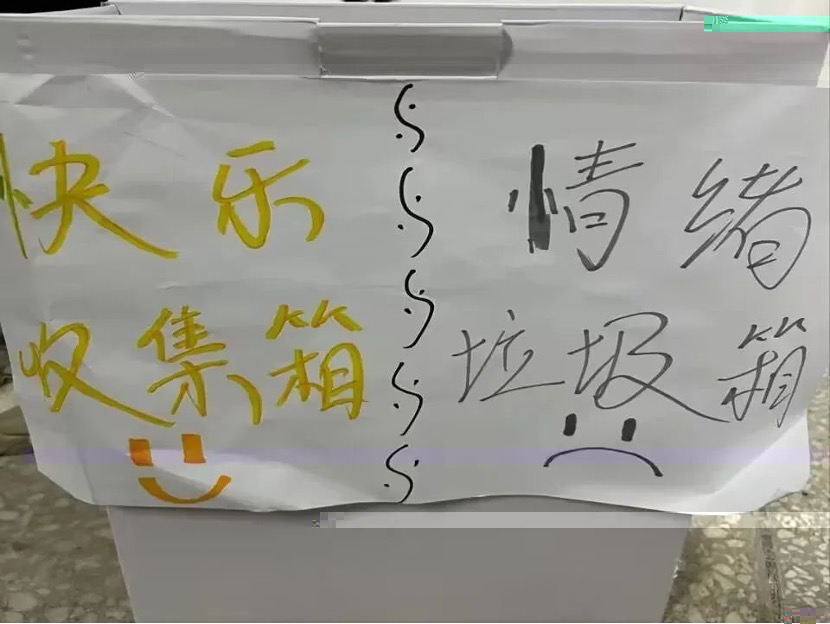 快乐
收集箱
情绪
垃圾箱